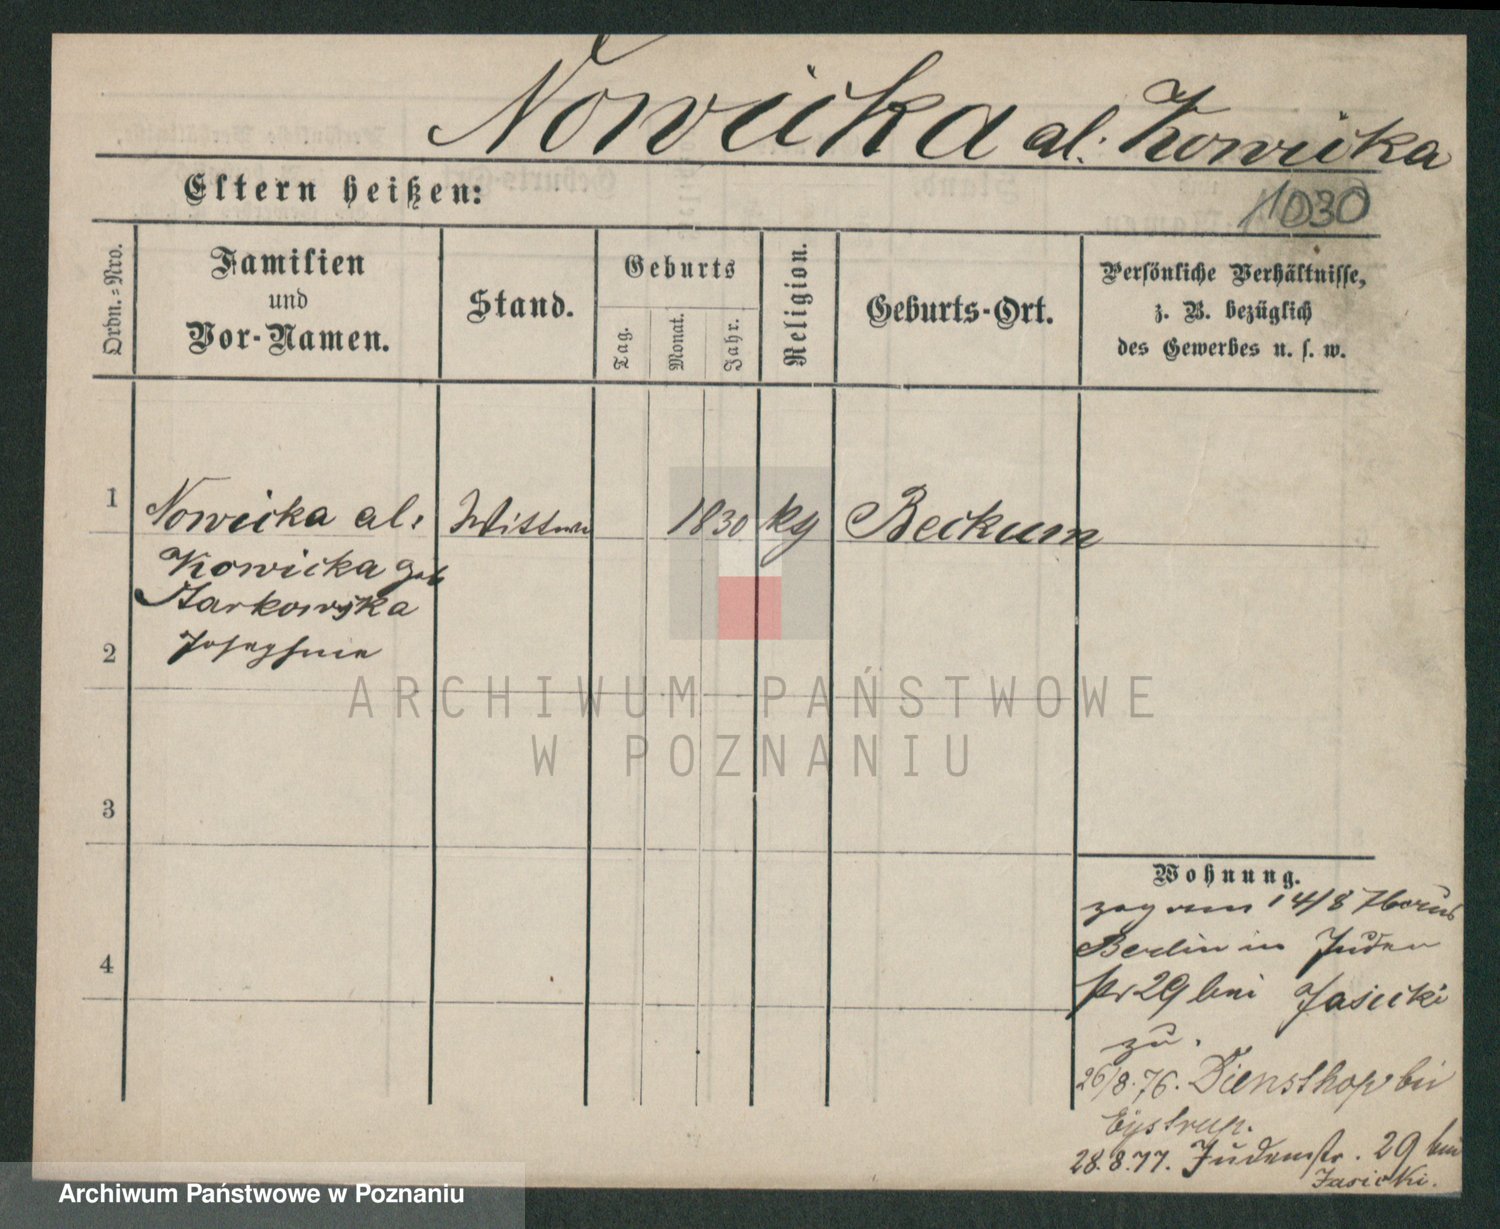 Nowicka al: Kowicka
Eltern heißen:
1030
Ordn.-Nro.
Familien
und
Vor-Namen.
Stand.
Geburts
Tag.
Monat.
Jahr.
Religion.
Geburts-Ort.
Persönliche Verhältnisse,
z. B. bezüglich
des Gewerbes u. s. w.
1 Nowicka al: Wittwe 1830 kg Beckum
Kowicka geb
Zarkowska
2 Josephine
ARCHIWUM PAŃSTWOWE
W POZNANIU
3
4
Wohnung.
zog am 14/8 76 aus
Berlin in Juden
str 29 bei Jasicki
zu.
26/8.76. Diensthop bei
Eystrup.
28.8.77. Judenstr. 29 bei
Jasicki.
Archiwum Państwowe w Poznaniu